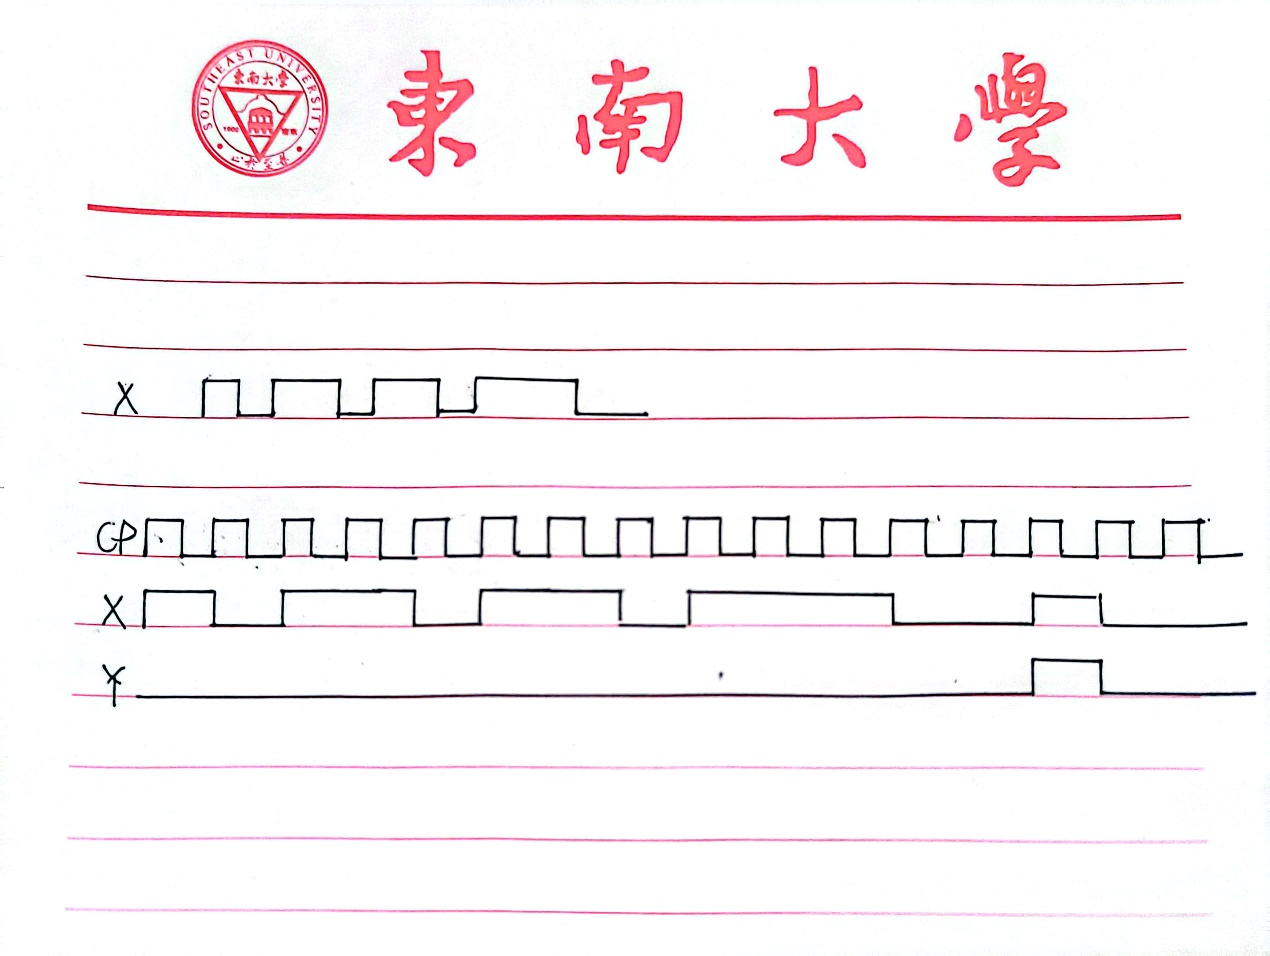 SOUTHEAST UNIVERSITY
東南大學
1902 南京
止於至善
東南大學
X
CP
X
Y